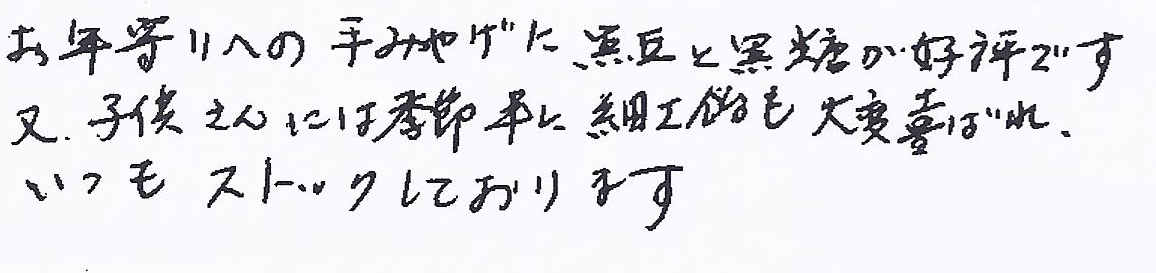 お年寄りへの手みやげに黒豆と黒糖が好評です
又、子供さんには季節毎に細工飴も大変喜ばれ、
いつもストックしております